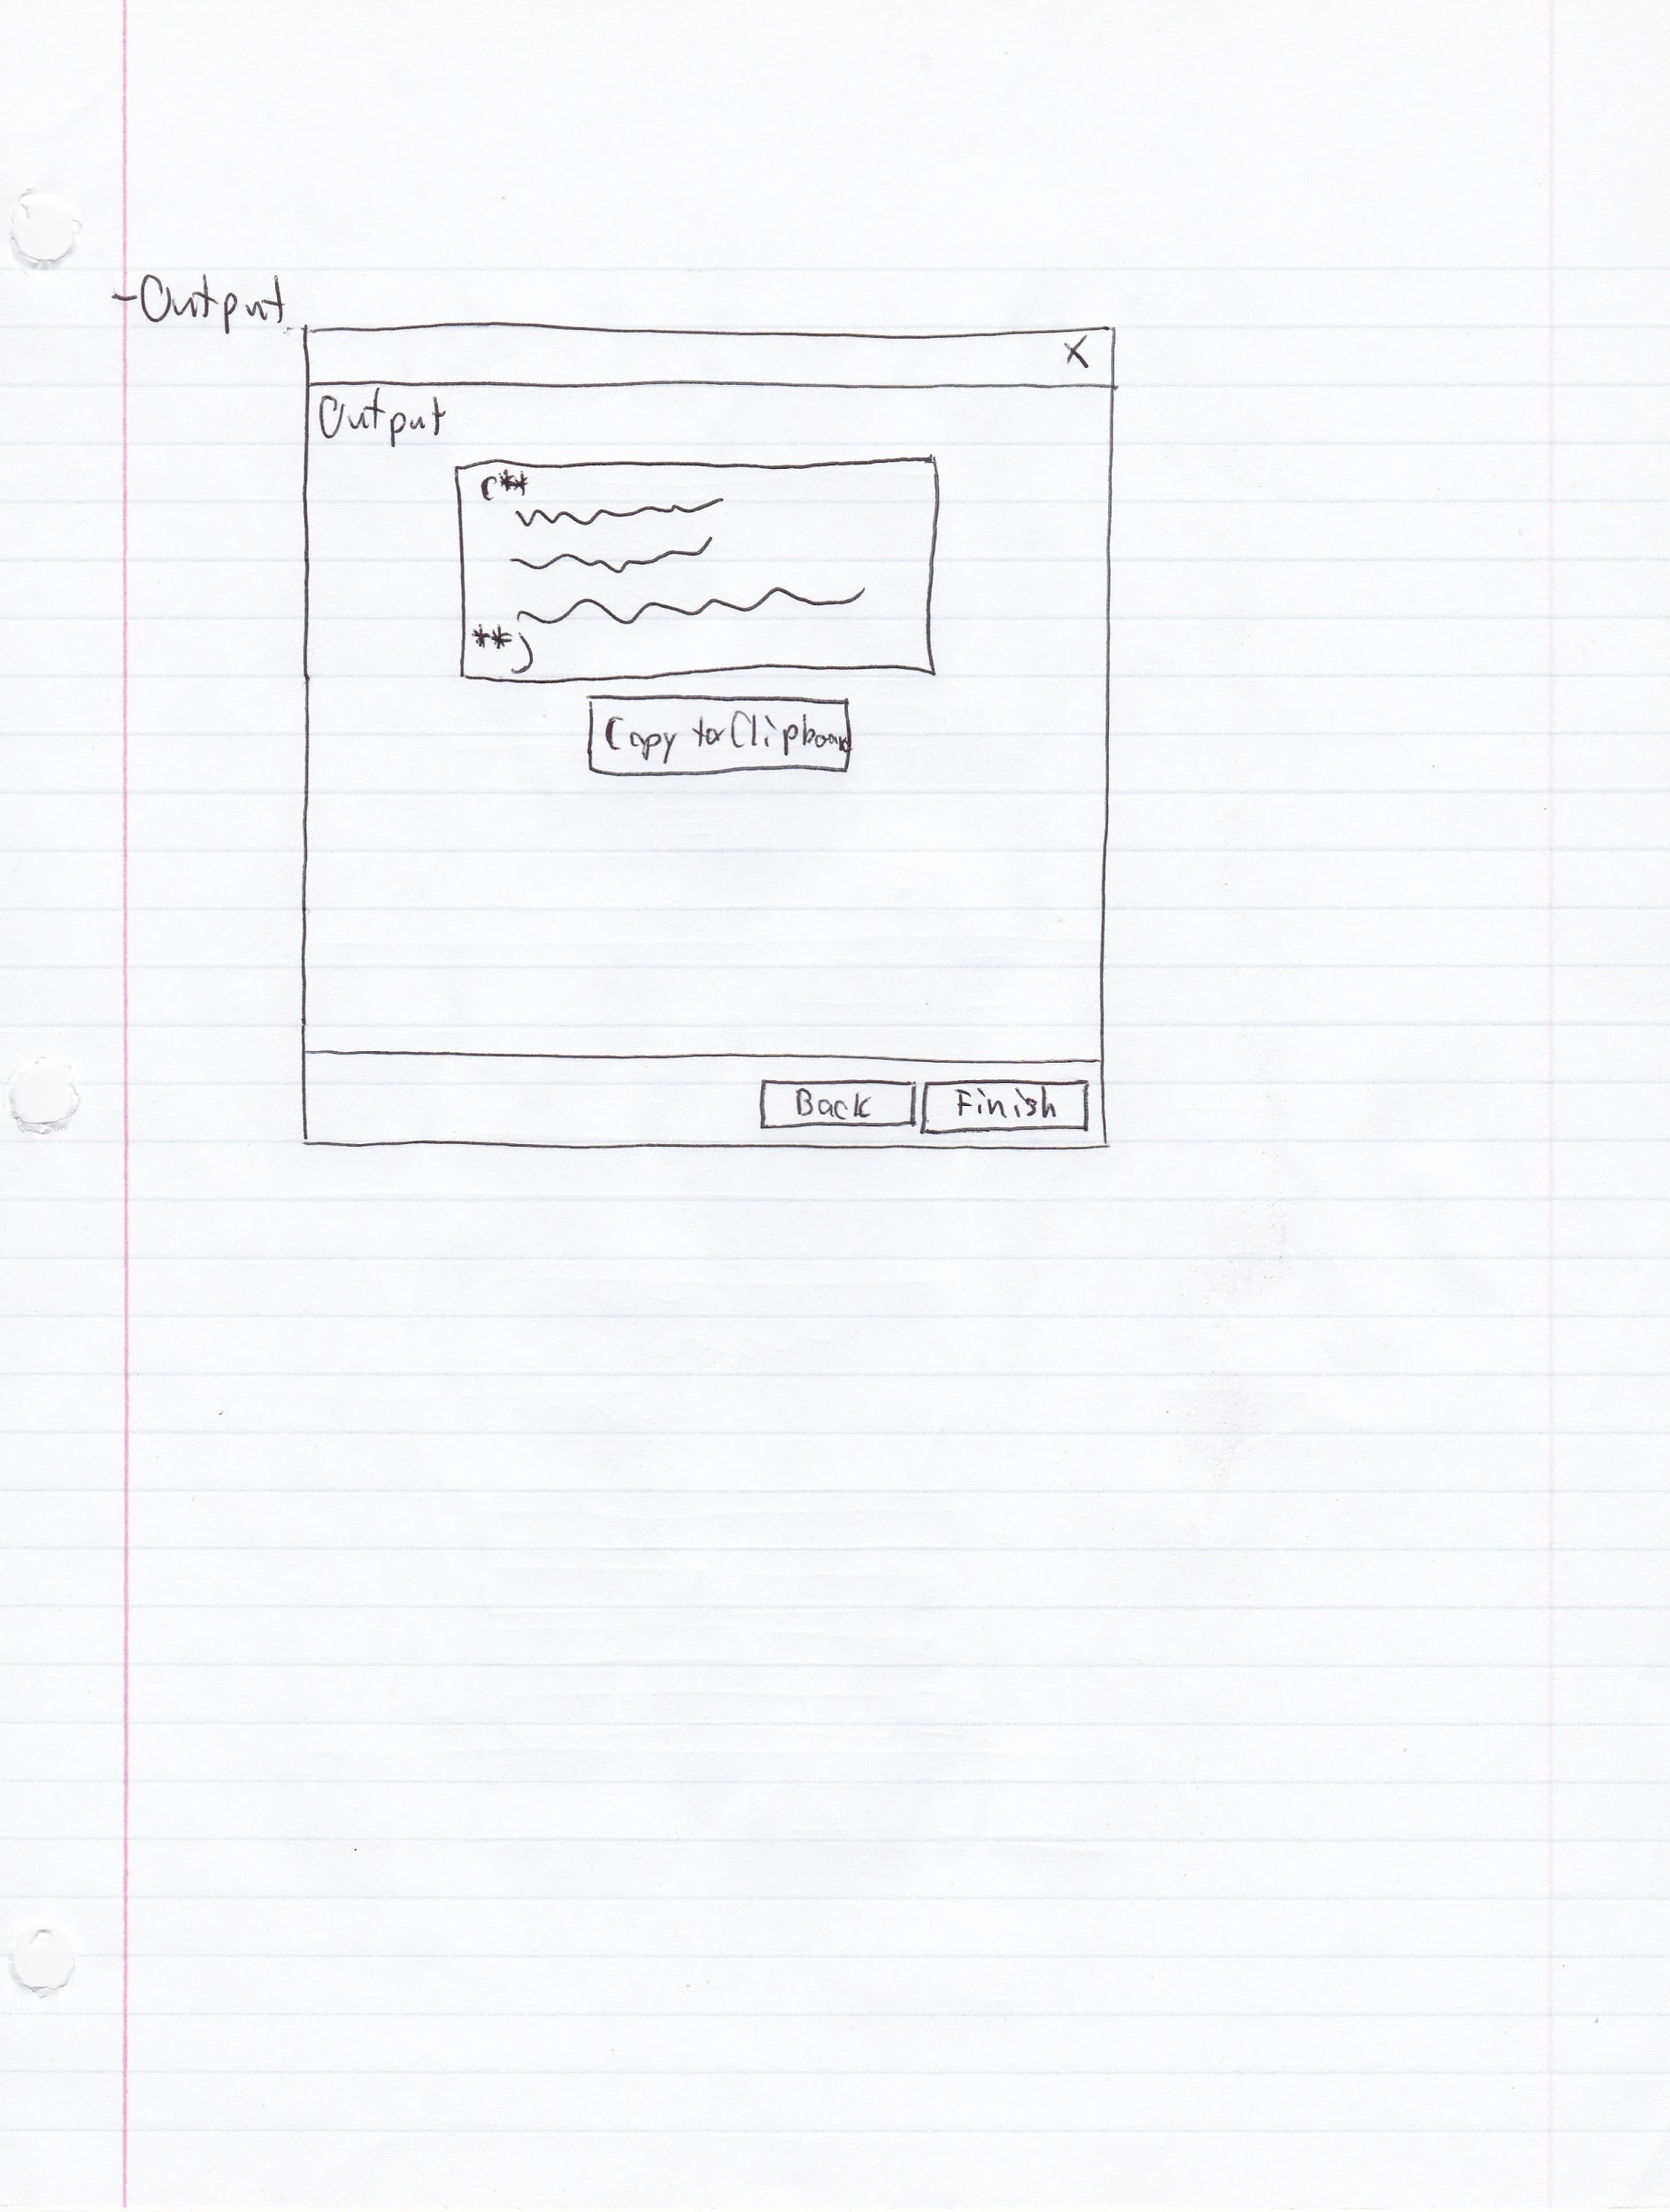 -Output
X
Output
(**
**)
Copy to Clipboard
Back
Finish